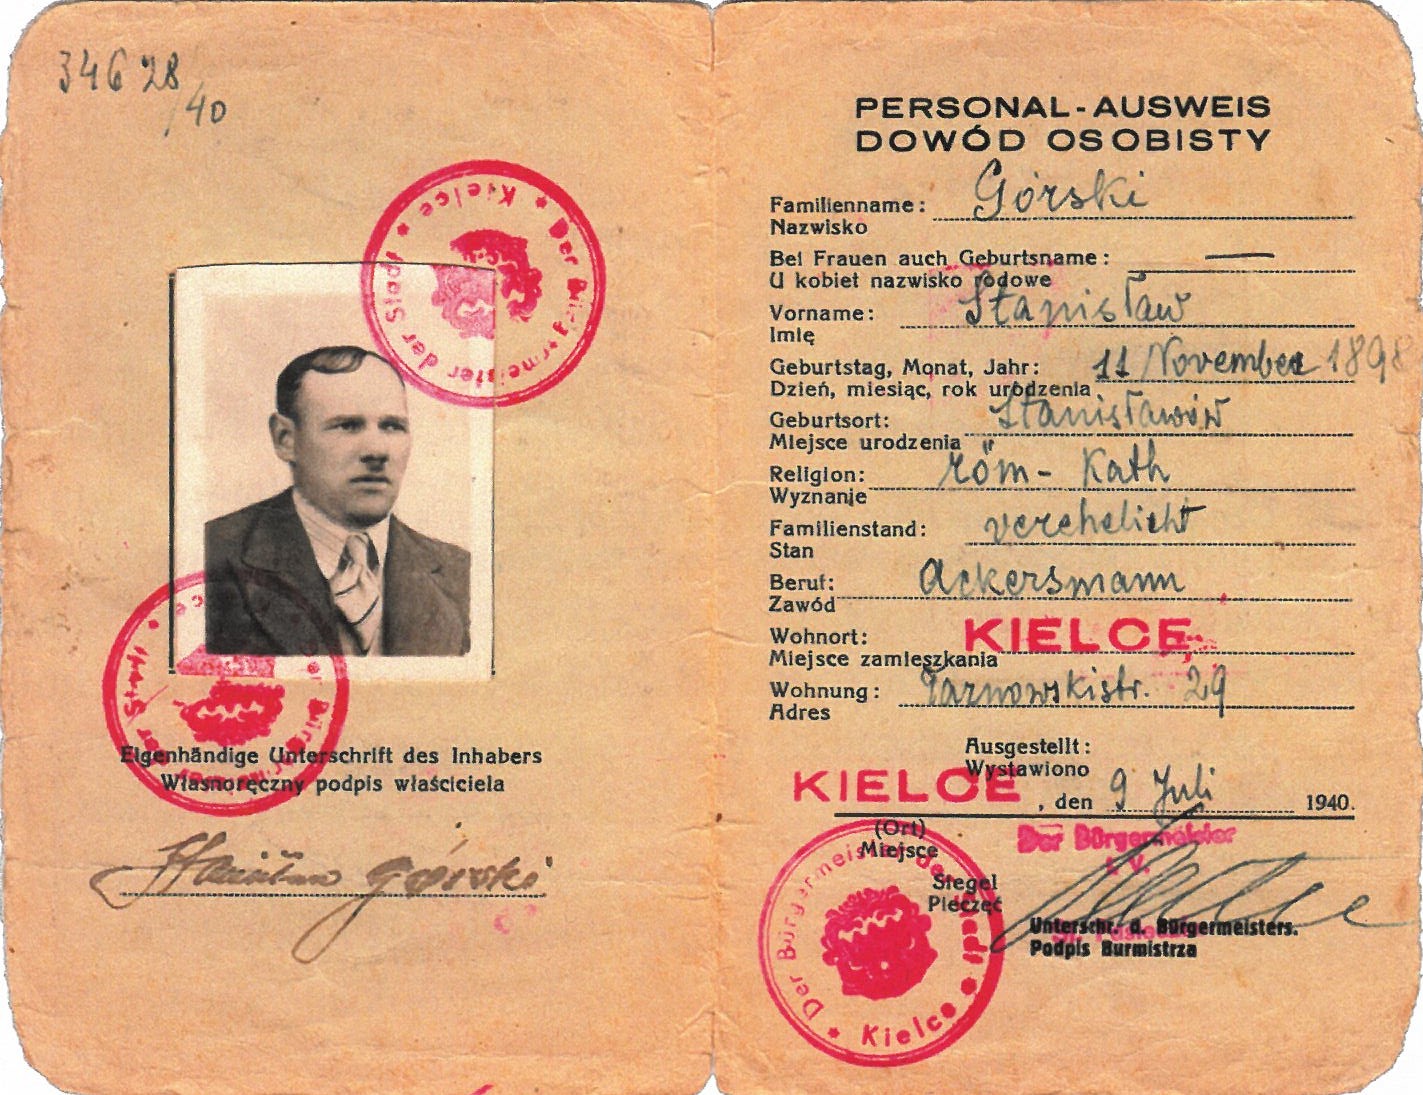 34628
/40
Der Bürgermeister der Stadt
* Kielce *
Der Bürgermeister der Stadt
Eigenhändige Unterschrift des Inhabers
Własnoręczny podpis właściciela
Stanisław Górski
PERSONAL-AUSWEIS
DOWÓD OSOBISTY
Familienname: Górski
Nazwisko
Bei Frauen auch Geburtsname: —
U kobiet nazwisko rodowe
Vorname: Stanisław
Imię
Geburtstag, Monat, Jahr: 11 November 1898
Dzień, miesiąc, rok urodzenia
Geburtsort: Stanisławów
Miejsce urodzenia
Religion: röm- Kath
Wyznanie
Familienstand: verehelicht
Stan
Beruf: Ackersmann
Zawód
Wohnort: KIELCE
Miejsce zamieszkania
Wohnung: Tarnowskistr. 29
Adres
Ausgestellt:
Wystawiono
KIELCE, den 9 Juli 1940.
(Ort)
Miejsce
Der Bürgermeister
I. V.
Siegel
Pieczęć
Unterschr. d. Bürgermeisters.
Podpis Burmistrza
Der Bürgermeister der Stadt
* Kielce *